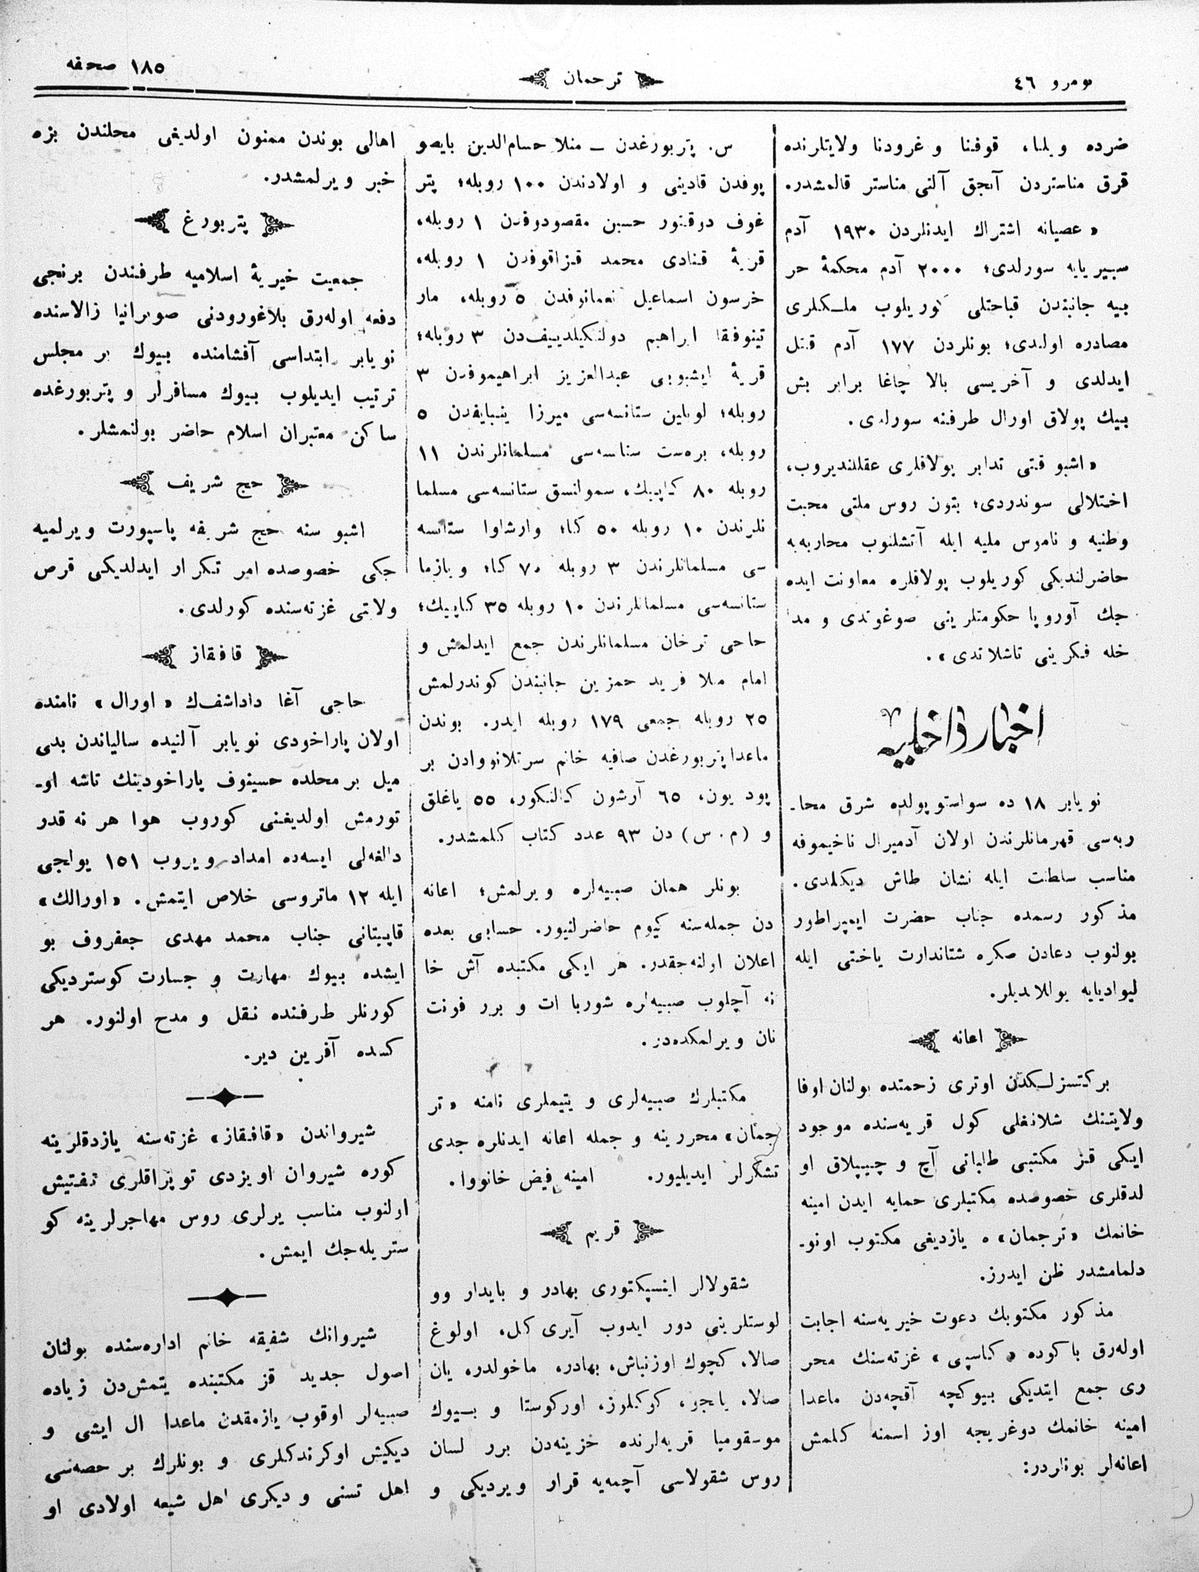 نومرو ٤٦
ترجمان
١٨٥ صحفه
ضرده ویلنا، قوفنا و غرودنا ولایتلرنده
قرق مناستردن آنجق آلتی مناستر قالمشدر.
« عصیانه اشتراك ایدنلردن ١٩٣٠ آدم
سیبریایه سورلدی؛ ٢٠٠٠ آدم محکمۀ حر
بیه جانبندن قباحتلی کوریلوب ملکلری
مصادره اولندی؛ بونلردن ١٧٧ آدم قتل
ایدلدی و آخریسی بالا چاغا برابر بش
بیك پولاق اورال طرفنه سورلدی.
« اشبو قتی تدابر پولاقلری عقللندیروب،
اختلالی سوندردی؛ بتون روس ملتی محبت
وطنیه و ناموس ملیه ایله آتشلنوب محاربه‌یه
حاضرلندیکی کوریلوب پولاقلره معاونت ایده
جك آوروپا حکومتلرینی صوغوتدی و مدا
خله فکرینی تاشلاتدی ».
اخبار داخلیه
نویابر ١٨ ده سواستوپولده شرق محا-
ربه‌سی قهرمانلرندن اولان آدمیرال ناخیموفه
مناسب سلطنت ایله نشان طاش دیکلدی.
مذکور رسمده جناب حضرت ایمپراطور
بولنوب دعادن صکره شتاندارت یاختی ایله
لیوادیایه یوللاندیلر.
اعانه
برکتسزلکدن اوتری زحمتده بولنان اوفا
ولایتنك شلانغلی کول قریه‌سنده موجود
ایکی قز مکتبی طلبانی آچ و چیپلاق او
لدقلری خصوصده مکتبلری حمایه ایدن امینه
خانمك « ترجمان » ه یازدیغی مکتوب اونو-
دلمامشدر ظن ایدرز.
مذکور مکتوبك دعوت خیریه‌سنه اجابت
اوله‌رق باکوده « کاسپی » غزته‌سنك محر
ری جمع ایتدیکی بیوکچه آقچه‌دن ماعدا
امینه خانمك دوغریجه اوز اسمنه کلمش
اعانه‌لر بونلردر:
س. پتربورغدن — منلا حسام‌الدین بایصو
پوفدن قادینی و اولادندن ١٠٠ روبله؛ پتر
غوف درقنور حسین مقصودوفدن ١ روبله،
قریۀ قنادی محمد قزاقوفدن ١ روبله،
خرسون اسماعیل نعمانوفدن ٥ روبله، مار
تینوفقا ابراهیم دولتکیلدییفدن ٣ روبله؛
قریۀ ایشبوبی عبدالعزیز ابراهیموفدن ٣
روبله؛ لوبلین ستانسه‌سی میرزا ینبایفدن ٥
روبله، بره‌ست ستانسه‌سی مسلمانلرندن ١١
روبله ٨٠ کاپیك، سمولنسق ستانسه‌سی مسلما
نلرندن ١٠ روبله ٥٠ کپا؛ وارشاوا ستانسه
سی مسلمانلرندن ٣ روبله ٧٠ کپا؛ ویازما
ستانسه‌سی مسلمانلرندن ١٠ روبله ٣٥ کاپیك؛
حاجی ترخان مسلمانلرندن جمع ایدلمش و
امام ملا فرید حمزین جانبندن کوندرلمش
٢٥ روبله جمعی ١٧٩ روبله ایدر. بوندن
ماعدا پتربورغدن صافیه خانم سرتلانووادن بر
پود یون، ٦٥ آرشون کالنکور، ٥٥ یاغلق
و (م. س) دن ٩٣ عدد کتاب کلمشدر.
بونلر همان صبیه‌لره ویرلمش؛ اعانه
دن جمله‌سنه کیوم حاضرلنیور. حسابی بعده
اعلان اولنه‌جقدر. هر ایکی مکتبده آش خا
نه آچلوب صبیه‌لره شوربا ات و برر فونت
نان ویرلمکده‌در.
مکتبلرك صبیه‌لری و یتیملری نامنه « تر
جمان » محررینه و جمله اعانه ایدنلره جدی
تشکرلر ایدیلیور. امینه فیض خانووا.
قریم
شقولالر اینسپکتوری بهادر و بایدار وو
لوستلرینی دور ایدوب آیری کل، اولوغ
صالا، کچوك اوزنباش، بهادر، ماخولدر، یان
صالا، یانجو، کوکلوز، اورکوستا و بیوك
موسقومیا قریه‌لرنده خزینه‌دن برر لسان
روس شقولاسی آچمه‌یه قرار ویردیکی و
اهالی بوندن ممنون اولدیغی محلندن بزه
خبر ویرلمشدر.
پتربورغ
جمعیت خیریۀ اسلامیه طرفندن برنجی
دفعه اوله‌رق بلاغورودنی صوبرانیا زالاسنده
نویابر ابتداسی آقشامنده بیوك بر مجلس
ترتیب ایدیلوب بیوك مسافرلر و پتربورغده
ساکن معتبران اسلام حاضر بولنمشلر.
حج شریف
اشبو سنه حج شریفه پاسپورت ویرلمیه
جکی خصوصده امر تکرار ایدلدیکی قرص
ولاتی غزته‌سنده کورلدی.
قافقاز
حاجی آغا داداشفك « اورال » نامنده
اولان پاراخودی نویابر آلتیده سالیاندن یدی
میل بر محلده حسینوف پاراخودینك تاشه او-
تورمش اولدیغنی کوروب هوا هر نه قدر
دالغه‌لی ایسه‌ده امداد ویروب ١٥١ یولجی
ایله ١٢ ماتروسی خلاص ایتمش. « اورالك »
قاپیتانی جناب محمد مهدی جعفروف بو
ایشده بیوك مهارت و جسارت کوستردیکی
کورنلر طرفنده نقل و مدح اولنور. هر
کسده آفرین دیر.
شیرواندن « قافقاز » غزته‌سنه یازدقلرینه
کوره شیروان اویزدی توپراقلری تفتیش
اولنوب مناسب یرلری روس مهاجرلرینه کو
ستریله‌جك ایمش.
شیروانك شفیقه خانم اداره‌سنده بولنان
اصول جدید قز مکتبنده یتمش‌دن زیاده
صبیه‌لر اوقوب یازمقدن ماعدا ال ایشی و
دیکیش اوکرندکلری و بونلرك بر حصه‌سی
اهل تسنی و دیکری اهل شیعه اولادی او